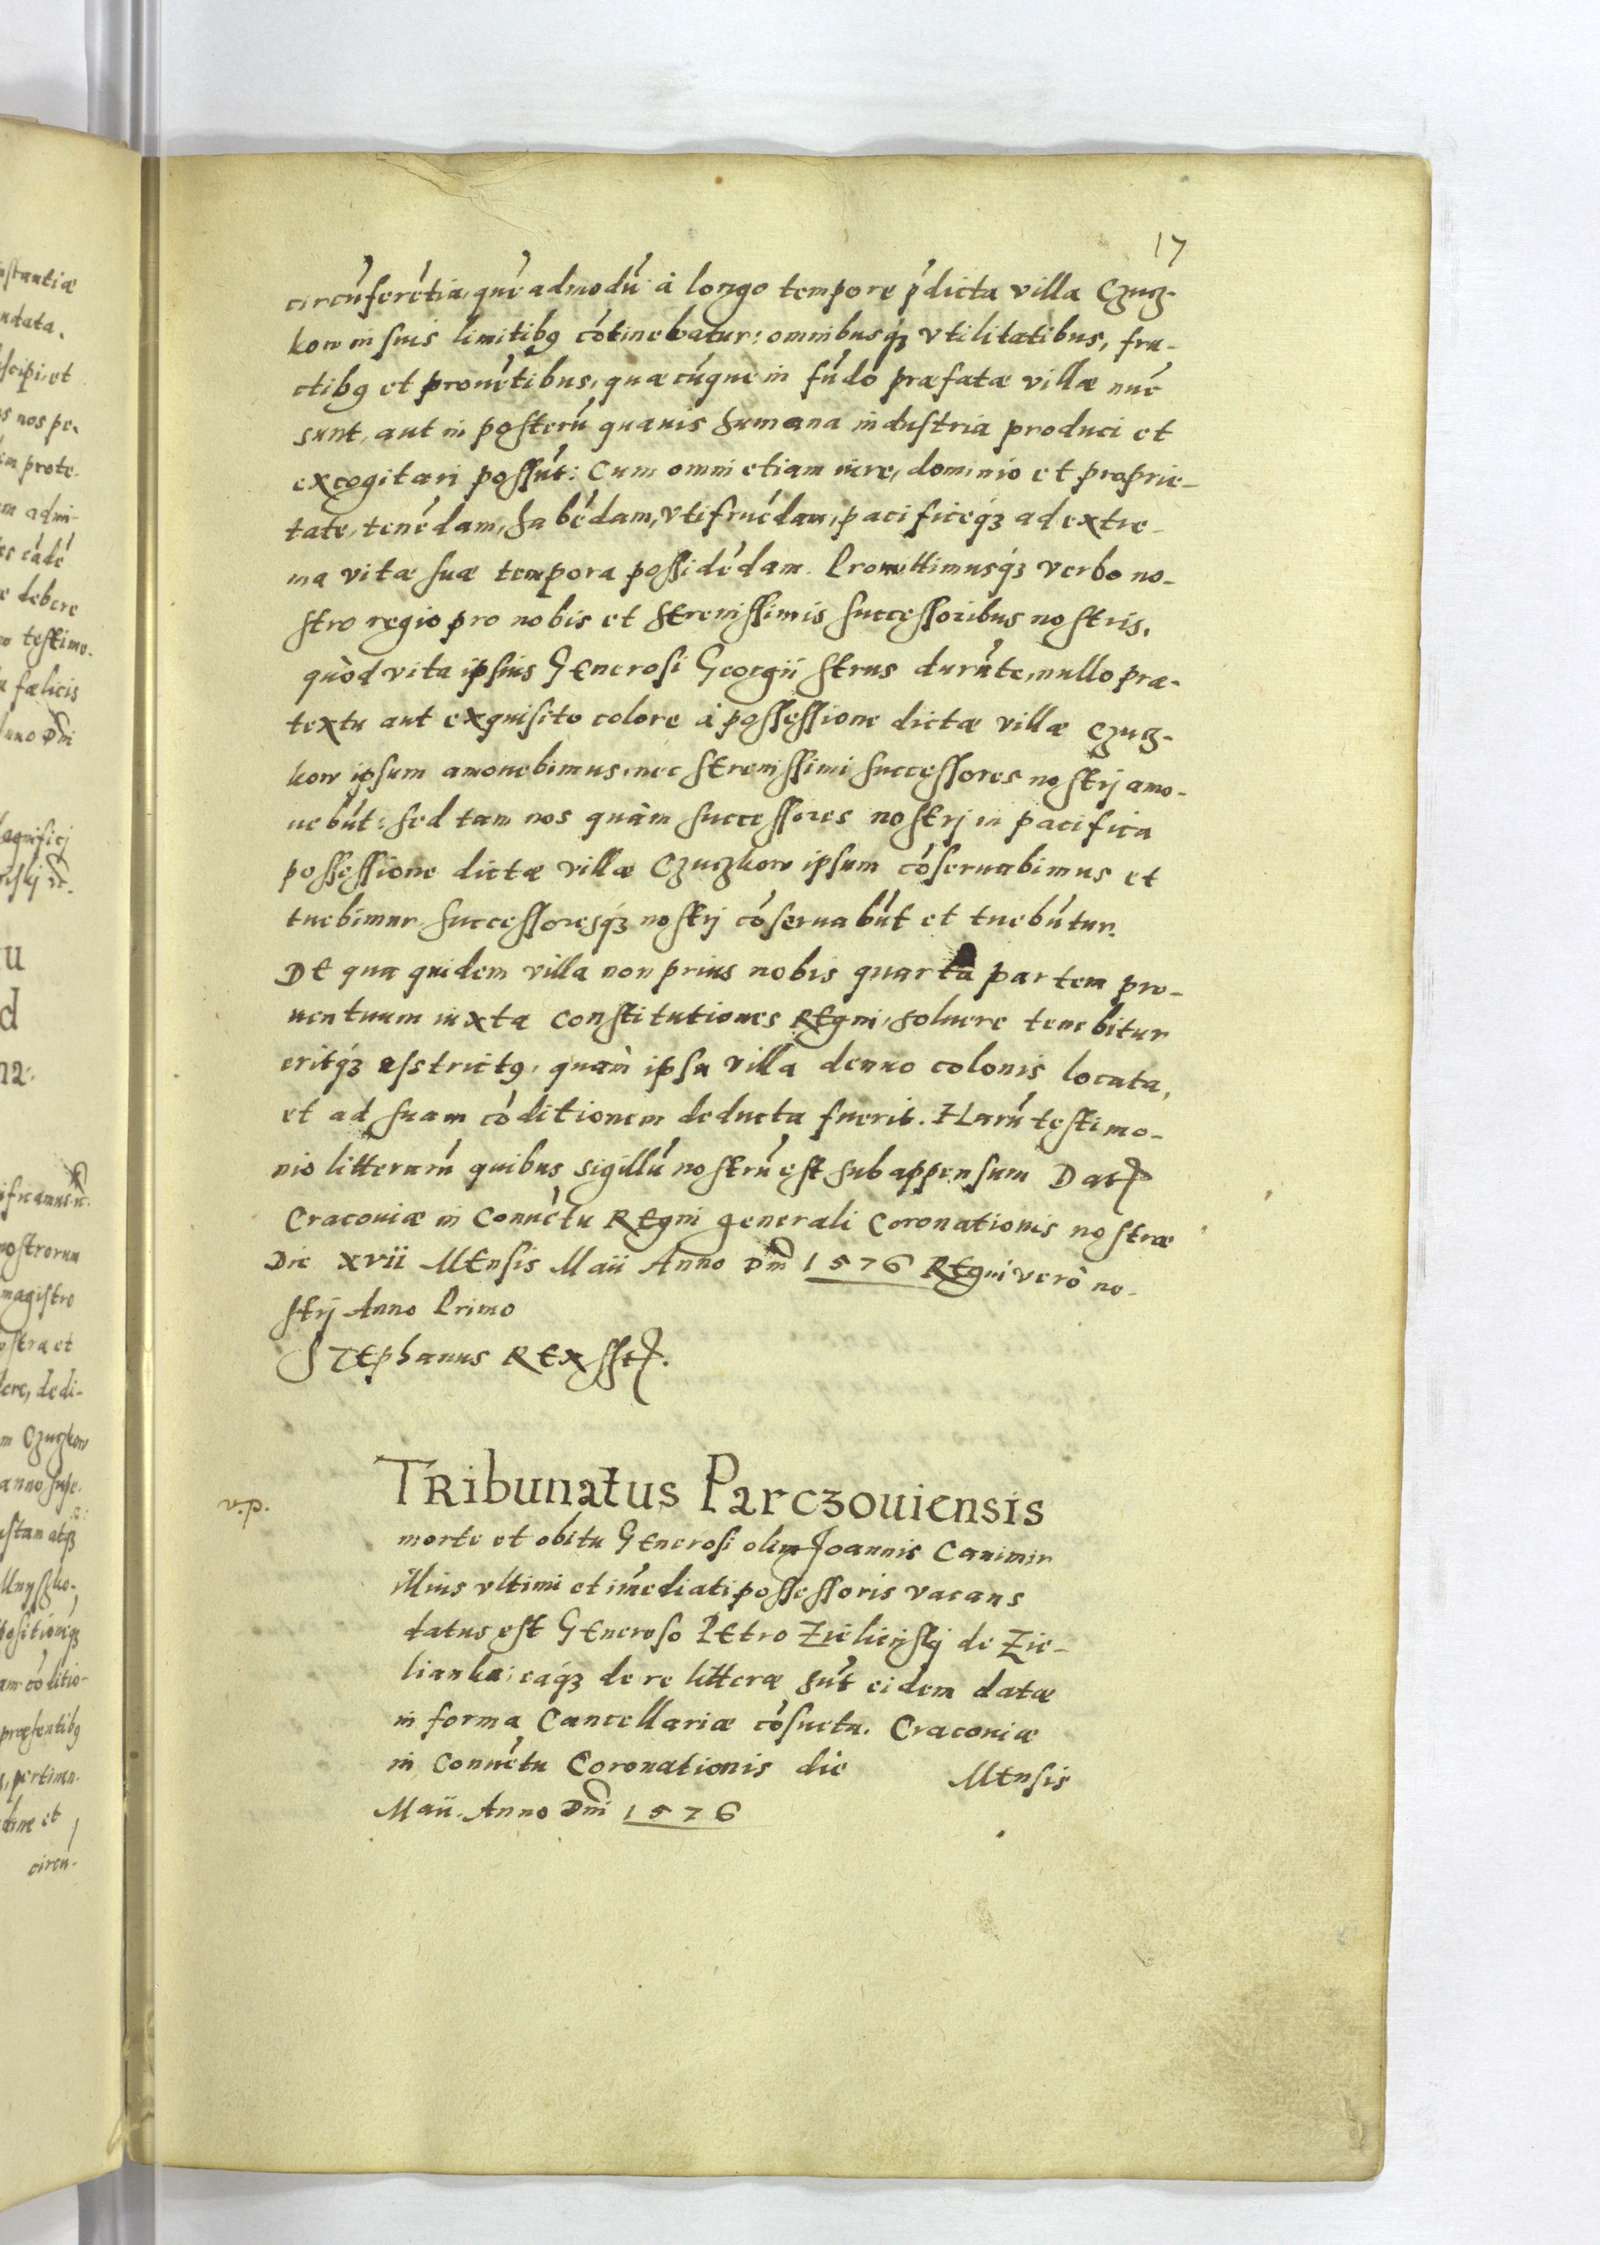 17
circúferétia, quéadmodú à longo tempore ṕdicta villa Czucz-
kow in suis limitibꝰ cótinebatur: omnibusq́ꝫ vtilitatibus, fru-
ctibꝰ et prouétibus, quæcúque in fúdo præfatæ villæ núc
sunt, aut in posterú quauis humana industria produci et
excogitari possút: Cum omni etiam iure, dominio et proprie-
tate, tenédam, habédam, vtifruédam, pacificeq́ꝫ ad extre-
ma vitæ suæ tempora possidédam. Promittimusq́ꝫ verbo no-
stro regio pro nobis et Serenissimis successoribus nostris,
quòd vita ipsius Generosi Georgii Strus duráte, nullo præ-
textu aut exquisito colore à possessione dictæ villæ Czucz-
kow ipsum amouebimus, nec Serenissimi successores nostrj amo-
uebút: sed tam nos quàm successores nostrj in pacifica
possessione dictæ villæ Czuczkow ipsum cóseruabimus et
tuebimur, successoresq́ꝫ nostrj cóseruabút et tuebútur.
De qua quidem villa non prius nobis quarta partem pro-
uentuum iuxta constitutiones Regni, soluere tenebitur
eritq́ꝫ asstrictꝰ, quàm ipsa villa denuo colonis locata,
et ad suam códitionem deducta fuerit. Harú testimo-
nio litterarú quibus sigillú nostrú est subappensum Datꝭ
Cracouiæ in Conuétu Regni generali Coronationis nostræ
Die xvii Mensis Maii Anno Dni 1576 Regni verò no-
strj Anno Primo
Stephanus Rex sstꝭ.
Tribunatus Parczouiensis
morte et obitu Generosi olim Joannis Canimir
illius vltimi et imediati possessoris vacans
datus est Generoso Petro Zielieńskj de Zie-
lianka; eaq́ꝫ de re litteræ sút eidem datæ
in forma Cancellariæ cósueta. Cracouiæ
in Conuétu Coronationis die Mensis
Maii. Anno Dni 1576